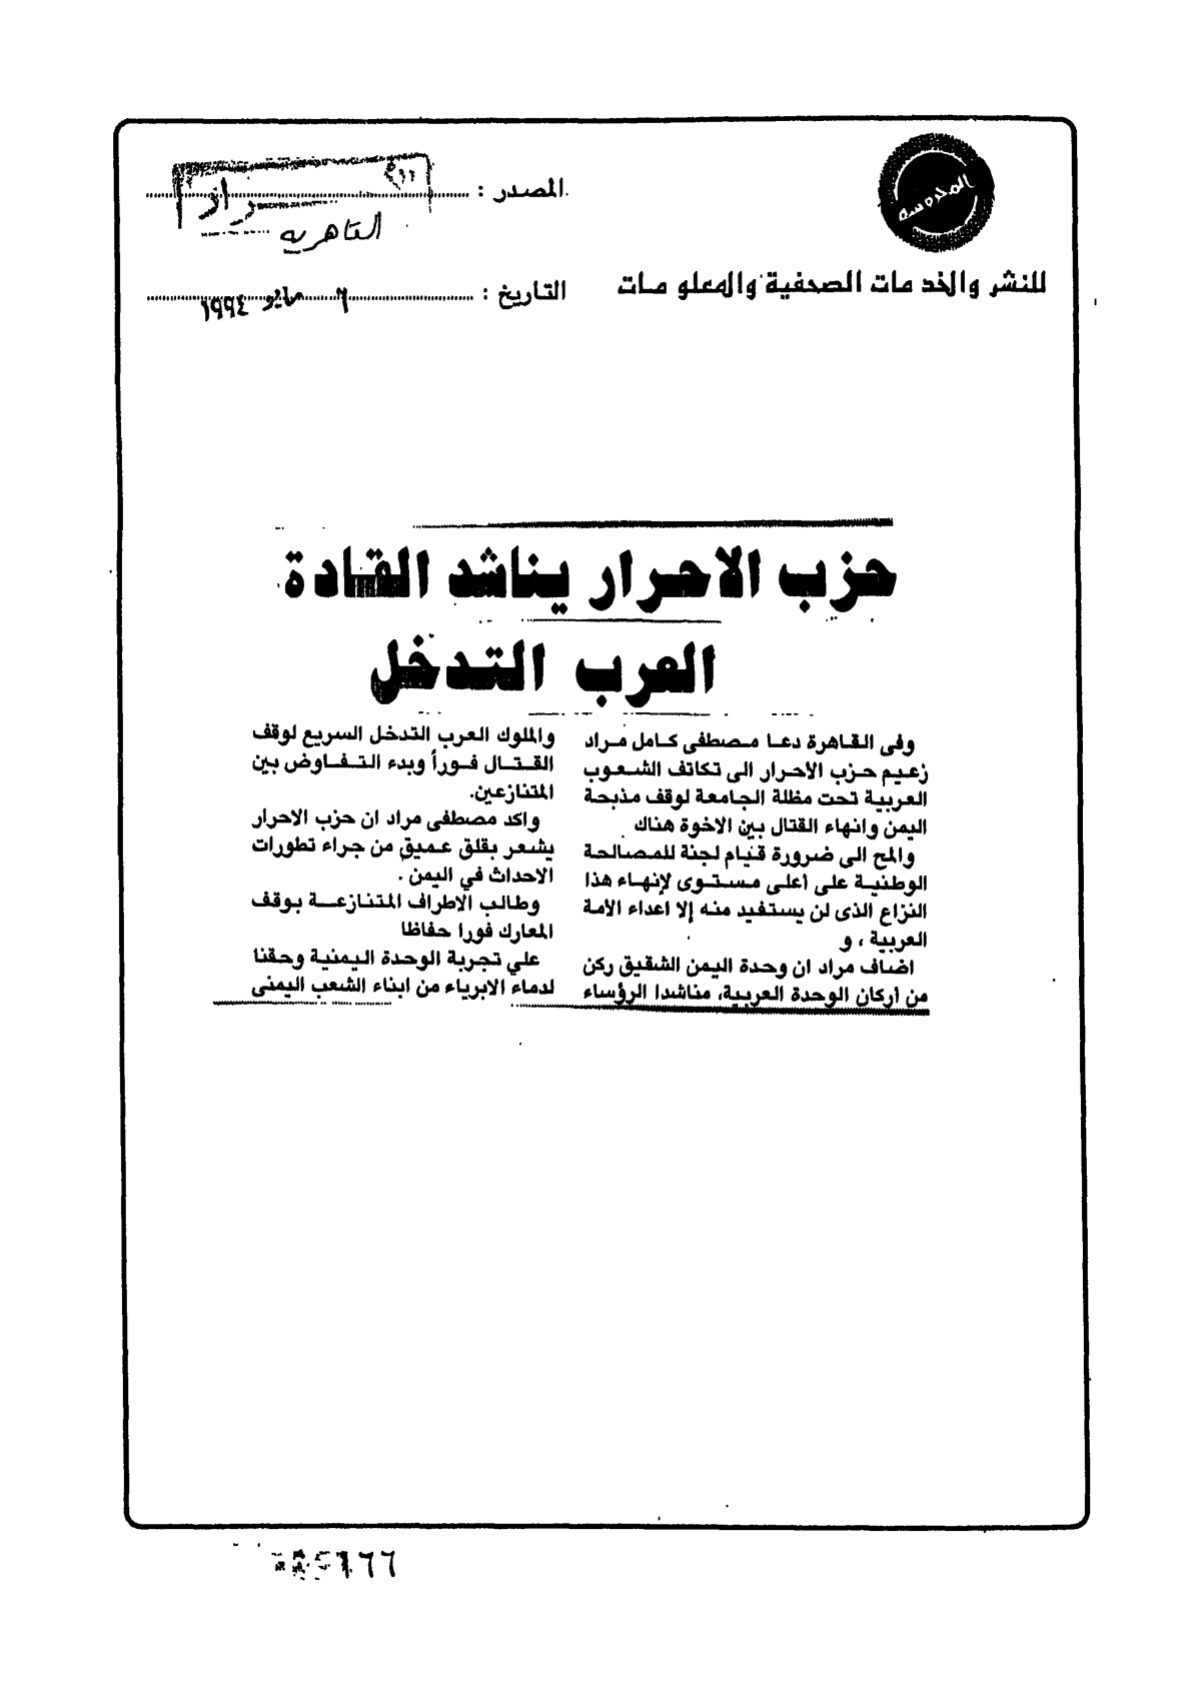 المحروسة
للنشر والخدمات الصحفية والمعلومات
المصدر :
القاهرية
التاريخ : ٦ مايو ١٩٩٤
حزب الاحرار يناشد القادة
العرب التدخل
وفى القاهرة دعا مصطفى كامل مراد
زعيم حزب الاحرار الى تكاتف الشعوب
العربية تحت مظلة الجامعة لوقف مذبحة
اليمن وانهاء القتال بين الاخوة هناك
والمح الى ضرورة قيام لجنة للمصالحة
الوطنية على أعلى مستوى لإنهاء هذا
النزاع الذى لن يستفيد منه إلا اعداء الامة
العربية ، و
اضاف مراد ان وحدة اليمن الشقيق ركن
من أركان الوحدة العربية، مناشدا الرؤساء
والملوك العرب التدخل السريع لوقف
القتال فوراً وبدء التفاوض بين
المتنازعين.
واكد مصطفى مراد ان حزب الاحرار
يشعر بقلق عميق من جراء تطورات
الاحداث في اليمن .
وطالب الاطراف المتنازعة بوقف
المعارك فورا حفاظا
علي تجربة الوحدة اليمنية وحقنا
لدماء الابرياء من ابناء الشعب اليمنى